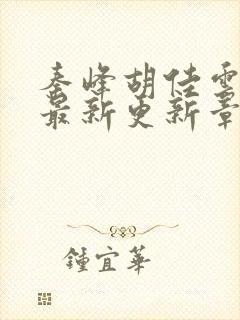 秦峰胡佳雲
最新更新章
鍾宜華